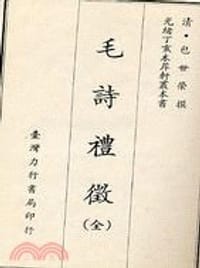 清・包世榮撰
光緒丁亥木犀軒叢本書
毛詩禮徵
(全)
臺灣力行書局印行